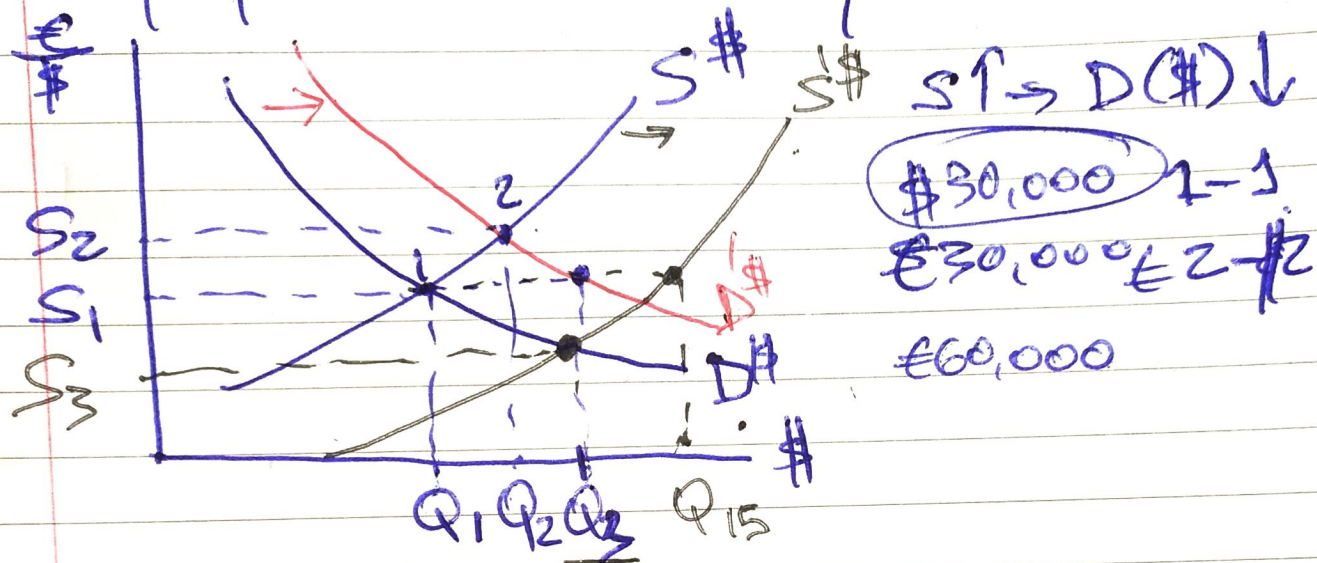 €
$
S$
S'$
S↑→ D($)↓
$30,000 1-1
€30,000 €2-$2
€60,000
2
S2
1
S1
D'$
S3
D$
$
Q1 Q2 Q3 Q15